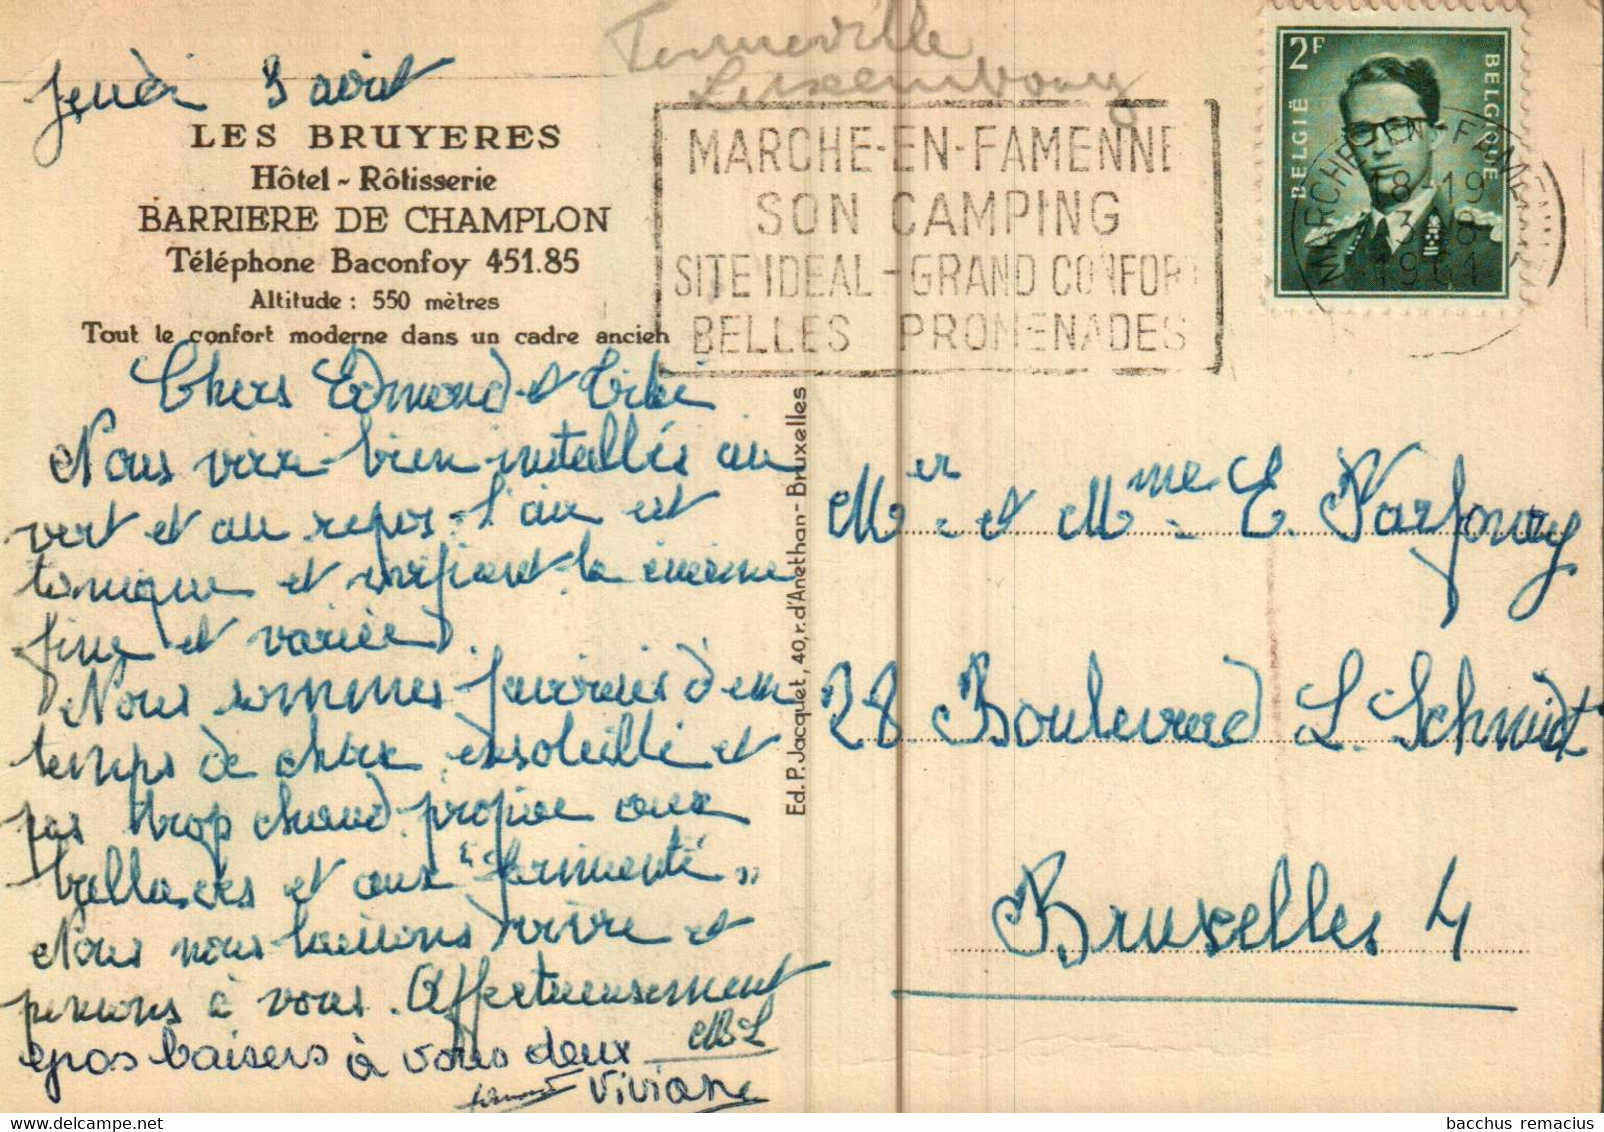 Tenneville
Luxembourg
Jeudi 3 août
LES BRUYERES
Hôtel ~ Rôtisserie
BARRIERE DE CHAMPLON
Téléphone Baconfoy 451.85
Altitude : 550 mètres
Tout le confort moderne dans un cadre ancien
MARCHE-EN-FAMENNE
SON CAMPING
SITE IDEAL - GRAND CONFORT
BELLES PROMENADES
2F
BELGIË
BELGIQUE
MARCHE-EN-FAMENNE
18-19
3 8
1961
Chers Edmond et
Nous voici bien installés au
vert et au repos. L'air est
tonique et vivifiant la cuisine
fine et variée.
Nous sommes favorisés d'un
temps de choix, ensoleillé et
pas trop chaud, propice aux
ballades et aux "farniente"
Nous nous laissons vivre et
pensons à vous. Affectueusement
ML
gros baisers à vous deux
Viviane
Ed. P. Jacquet, 40, r. d'Anethan - Bruxelles
Mr. et Mme. E. Parfonry
28 Boulevard L. Schmidt
Bruxelles 4
bacchus remacius